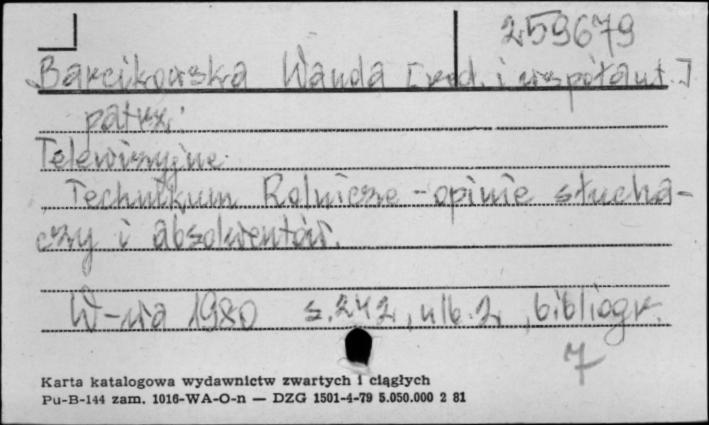 259679
Barcikowska Wanda [red. i współaut.]
patrz:
Telewizyjne
Technikum Rolnicze - opinie słucha-
czy i absolwentów.
W-wa 1980 s. 242, nlb. 2, bibliogr.
7
Karta katalogowa wydawnictw zwartych i ciągłych
Pu-B-144 zam. 1016-WA-O-n — DZG 1501-4-79 5.050.000 2 81